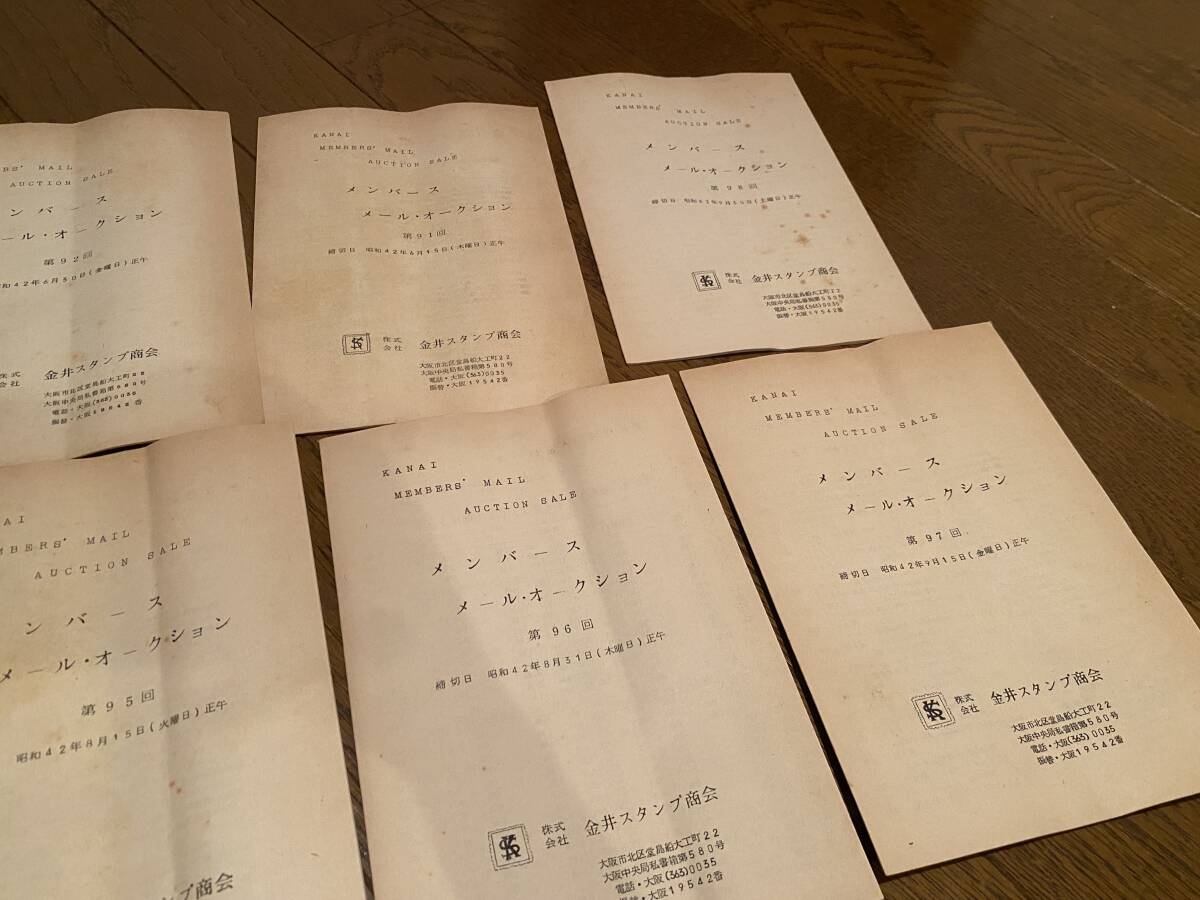 MAIL
AUCTION SALE
ンバース
ール・オークション
第92回
和42年6月30日(金曜日)正午
株式
会社
金井スタンプ商会
大阪市北区堂島船大工町22
大阪中央局私書箱第580号
電話・大阪(363)0035
振替・大阪19542番
KANAI
MEMBERS' MAIL
AUCTION SALE
メンバース
メール・オークション
第91回
締切日 昭和42年6月15日(木曜日)正午
株式
会社
金井スタンプ商会
大阪市北区堂島船大工町22
大阪中央局私書箱第580号
電話・大阪(363)0035
振替・大阪19542番
KANAI
MEMBERS' MAIL
AUCTION SALE
メンバース
メール・オークション
第98回
締切日 昭和42年9月30日(土曜日)正午
株式
会社
金井スタンプ商会
大阪市北区堂島船大工町22
大阪中央局私書箱第580号
電話・大阪(363)0035
振替・大阪19542番
AI
MBERS' MAIL
AUCTION SALE
ンバース
メール・オークション
第95回
昭和42年8月15日(火曜日)正午
スタンプ商会
KANAI
MEMBERS' MAIL
AUCTION SALE
メンバース
メール・オークション
第96回
締切日 昭和42年8月31日(木曜日)正午
株式
会社
金井スタンプ商会
大阪市北区堂島船大工町22
大阪中央局私書箱第580号
電話・大阪(363)0035
振替・大阪19542番
KANAI
MEMBERS' MAIL
AUCTION SALE
メンバース
メール・オークション
第97回
締切日 昭和42年9月15日(金曜日)正午
株式
会社
金井スタンプ商会
大阪市北区堂島船大工町22
大阪中央局私書箱第580号
電話・大阪(363)0035
振替・大阪19542番